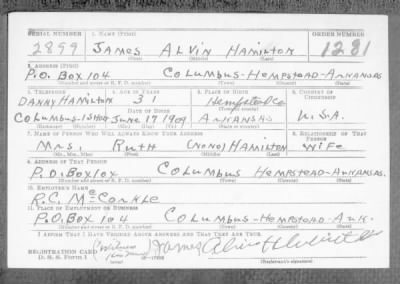 SERIAL NUMBER 1. NAME (Print) ORDER NUMBER
2899 JAMES ALVIN HAMILTON 1281
(First) (Middle) (Last)
2. ADDRESS (Print)
P.O. BOX 104 COLUMBUS-HEMPSTEAD-ARKANSAS
(Number and street or R. F. D. number) (Town) (County) (State)
3. TELEPHONE 4. AGE IN YEARS 5. PLACE OF BIRTH 6. COUNTRY OF CITIZENSHIP
DANNY HAMILTON 31 Hempstead Co
DATE OF BIRTH (Town or county)
COLUMBUS-1 SHORT JUNE 17 1909 ARKANSAS U.S.A.
(Exchange) (Number) (Mo.) (Day) (Yr.) (State or country)
7. NAME OF PERSON WHO WILL ALWAYS KNOW YOUR ADDRESS 8. RELATIONSHIP OF THAT PERSON
MRS. RUTH (NONE) HAMILTON WIFE
(Mr., Mrs., Miss) (First) (Middle) (Last)
9. ADDRESS OF THAT PERSON
P.O. BOX 104 COLUMBUS HEMPSTEAD-ARKANSAS.
(Number and street or R. F. D. number) (Town) (County) (State)
10. EMPLOYER'S NAME
R.C. McCORKLE
11. PLACE OF EMPLOYMENT OR BUSINESS
P.O. BOX 104 COLUMBUS-HEMPSTEAD-ARK.
(Number and street or R. F. D. number) (Town) (County) (State)
I AFFIRM THAT I HAVE VERIFIED ABOVE ANSWERS AND THAT THEY ARE TRUE.
REGISTRATION CARD James Alvin Hamilton
D. S. S. Form 1 (Registrant's signature)